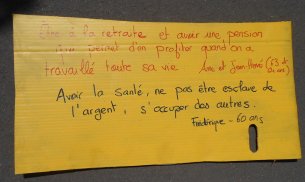 Être à la retraite et avoir une pension
qui permet d'en profiter quand on a
travaillé toute sa vie Anne et Jean-Hervé (63 et
ans)
Avoir la santé, ne pas être esclave de
l'argent, s'occuper des autres.
Frédérique - 60 ans